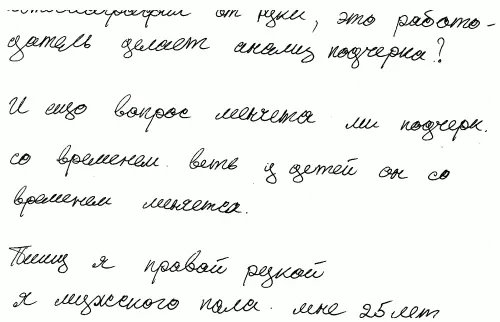 от руки, это работо-
датель делает анализ подчерка?
И ещо вопрос менчетса ли подчерк.
со временем. веть у детей он со
временем меняетса.
Пишу я правой рукой
я мужского пола. мне 25 лет